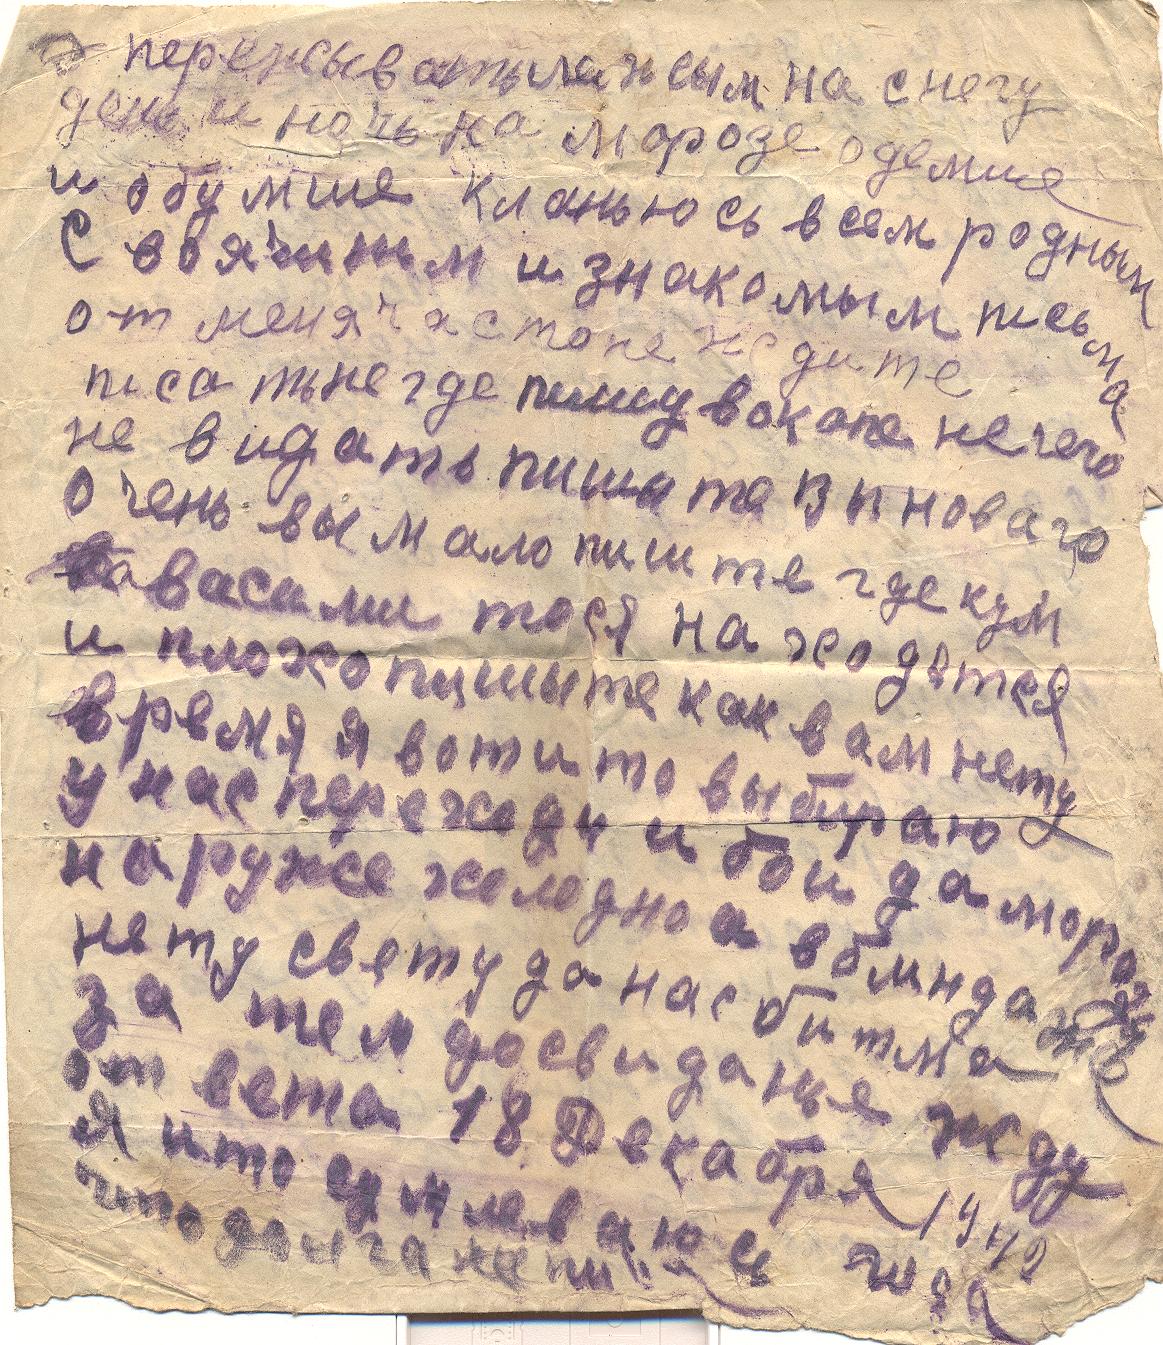 переживать лежым на снегу
день и ночь на морозе одемше
и обумше кланьюсь всем родным
С воячиным и знакомым письма
от меня часто не ждите
писать негде пишу вокопе нечего
не видать пишите В п новаго
очень вы мало пиште где кум
васами тося находятся
и плохо пишыте как вам нету
время я вот и то выбираю
у нас пережоди и бои да мороз
наруже холодно а вблиндаже
нету свету да нас битма
за тем досвиданье жду
ответа 18 Декабря 1942 года
Я и то
что долга не